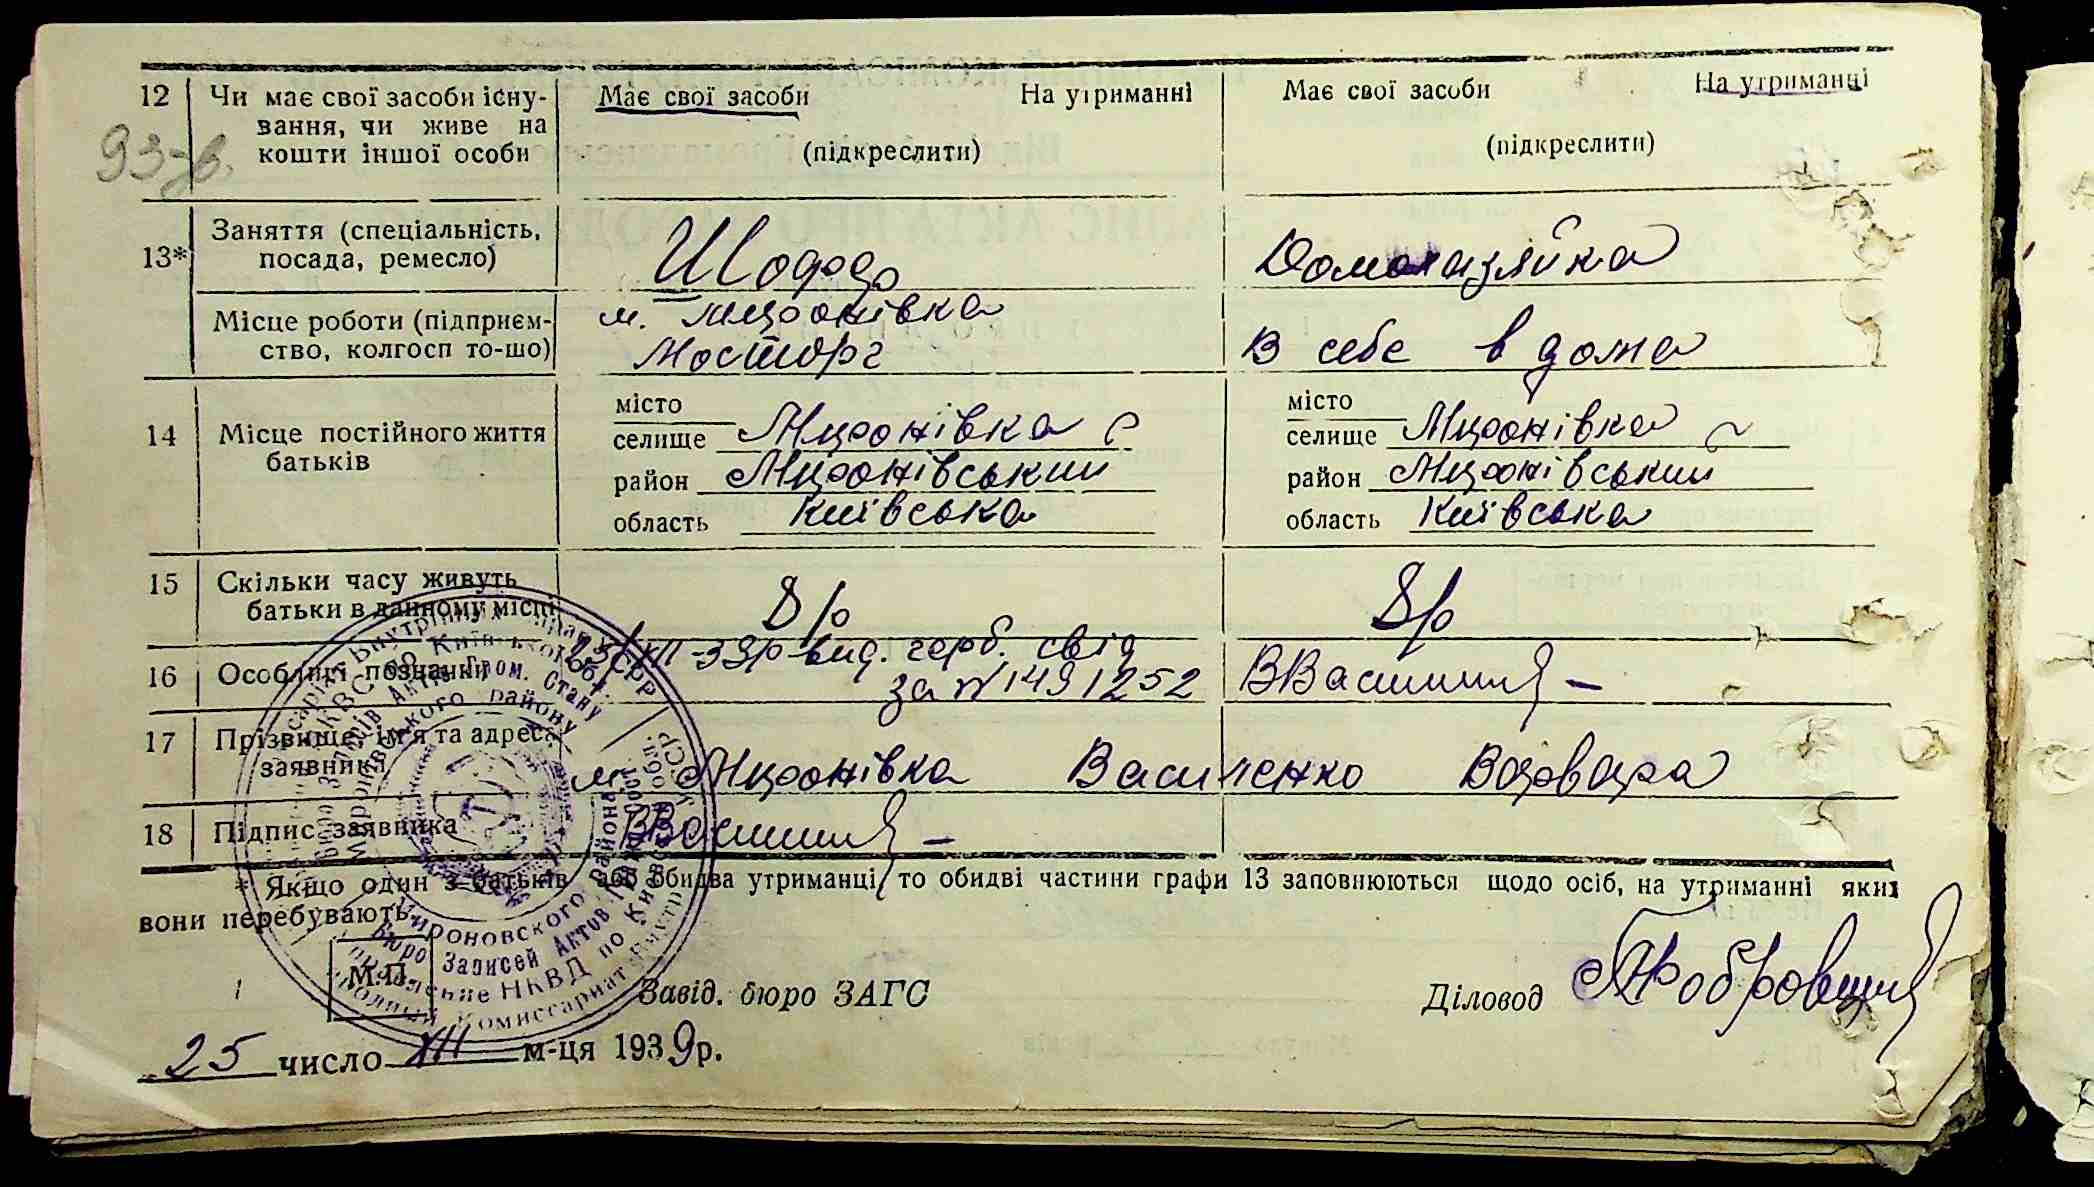 12 Чи має свої засоби існу- Має свої засоби На утриманні Має свої засоби На утриманці
вання, чи живе на
кошти іншої особи (підкреслити) (підкреслити)
93-в.
13* Заняття (спеціальність, посада, ремесло) Шофер Домохазяйка
Місце роботи (підприєм- м. Миронівка
ство, колгосп то-що) Мосторг В себе в дома
14 Місце постійного життя батьків
місто місто
селище Миронівка селище Миронівка
район Миронівський район Миронівський
область Київська область Київська
15 Скільки часу живуть 8 р 8 р
батьки в данному місці
16 Особливі позначки 25/XII-39р вид. герб. свід
за № 1491252 ВВасилий
17 Прізвище, ім'я та адреса
заявника м. Миронівка Василенко Варвара
18 Підпис заявника ВВасилий
* Якщо один з батьків або обидва утриманці, то обидві частини графи 13 заповнюються щодо осіб, на утриманні яких
вони перебувають.
М.П. Завід. бюро ЗАГС Діловод
25 число XII м-ця 1939р.
Актів Гром. Стану
району
Мироновского района
Бюро Записей Актов
НКВД по
Комиссариат Внутр